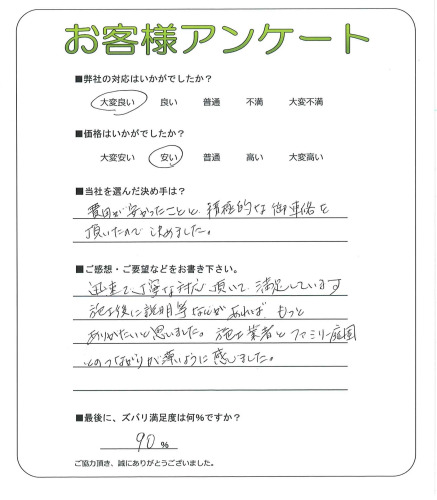 お客様アンケート
■弊社の対応はいかがでしたか？
大変良い 良い 普通 不満 大変不満
■価格はいかがでしたか？
大変安い 安い 普通 高い 大変高い
■当社を選んだ決め手は？
費用が安かったことと、積極的な御連絡を
頂いたので決めました。
■ご感想・ご要望などをお書き下さい。
迅速で、丁寧な対応頂いて、満足しています
施工後に説明等なんかがあれば、もっと
ありがたいと思いました。施工業者とファミリー庭園
のつながりが薄いように感じました。
■最後に、ズバリ満足度は何%ですか？
90 %
ご協力頂き、誠にありがとうございました。